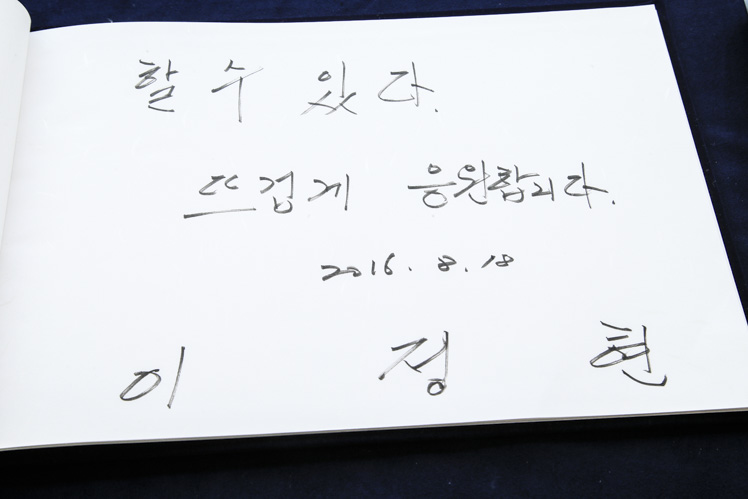 할 수 있다.
뜨겁게 응원합니다.
2016. 8. 18
이 정 현